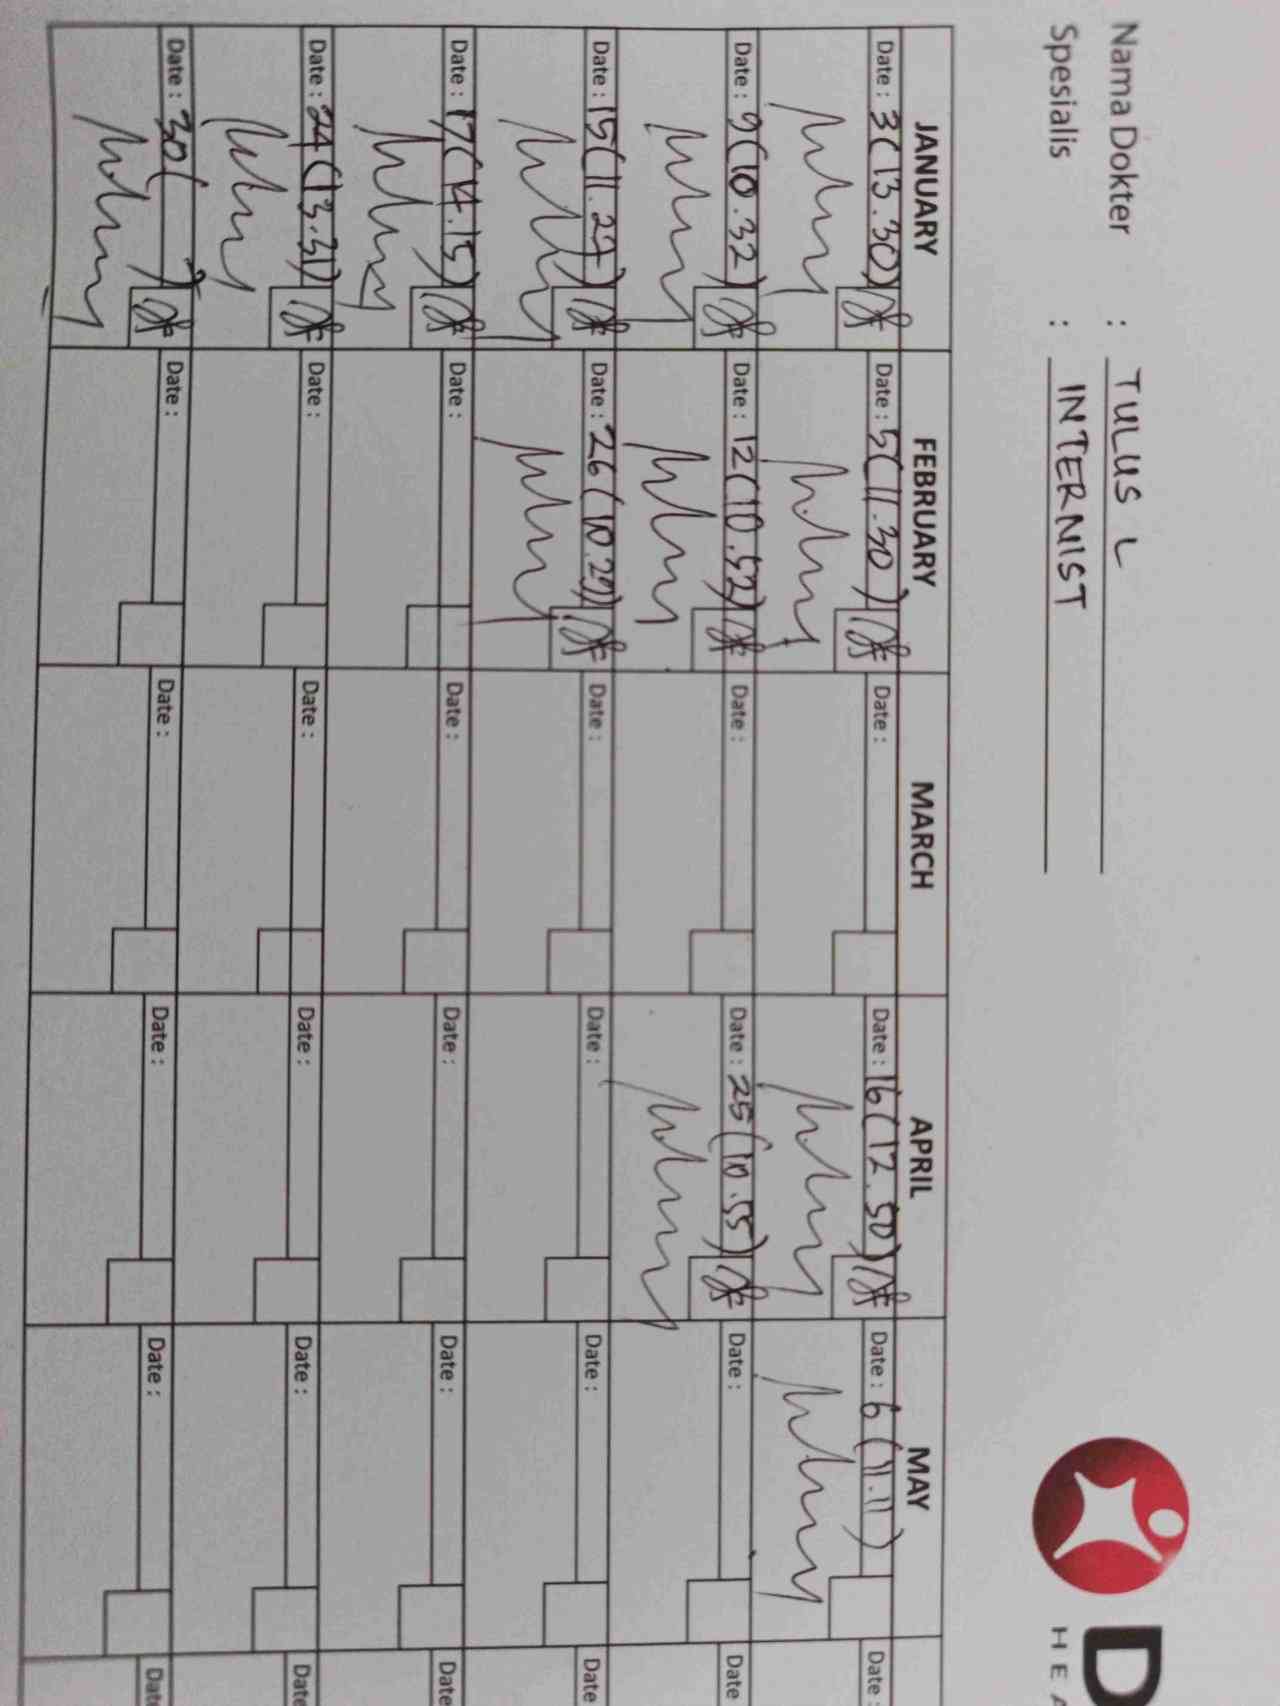 Nama Dokter : TULUS L
Spesialis : INTERNIST
D
HEA
JANUARY FEBRUARY MARCH APRIL MAY
Date : 3 (13.30) Date : 5 (11.30) Date : Date : 16 (12.50) Date : 6 (11.11) Date :
Date : 9 (10.32) Date : 12 (10.52) Date : Date : 25 (10.55) Date : Date
Date : 15 (11.27) Date : 26 (10.29) Date : Date : Date : Date
Date : 17 (14.15) Date : Date : Date : Date : Date
Date : 24 (13.31) Date : Date : Date : Date : Date
Date : 30 ( ) Date : Date : Date : Date : Date